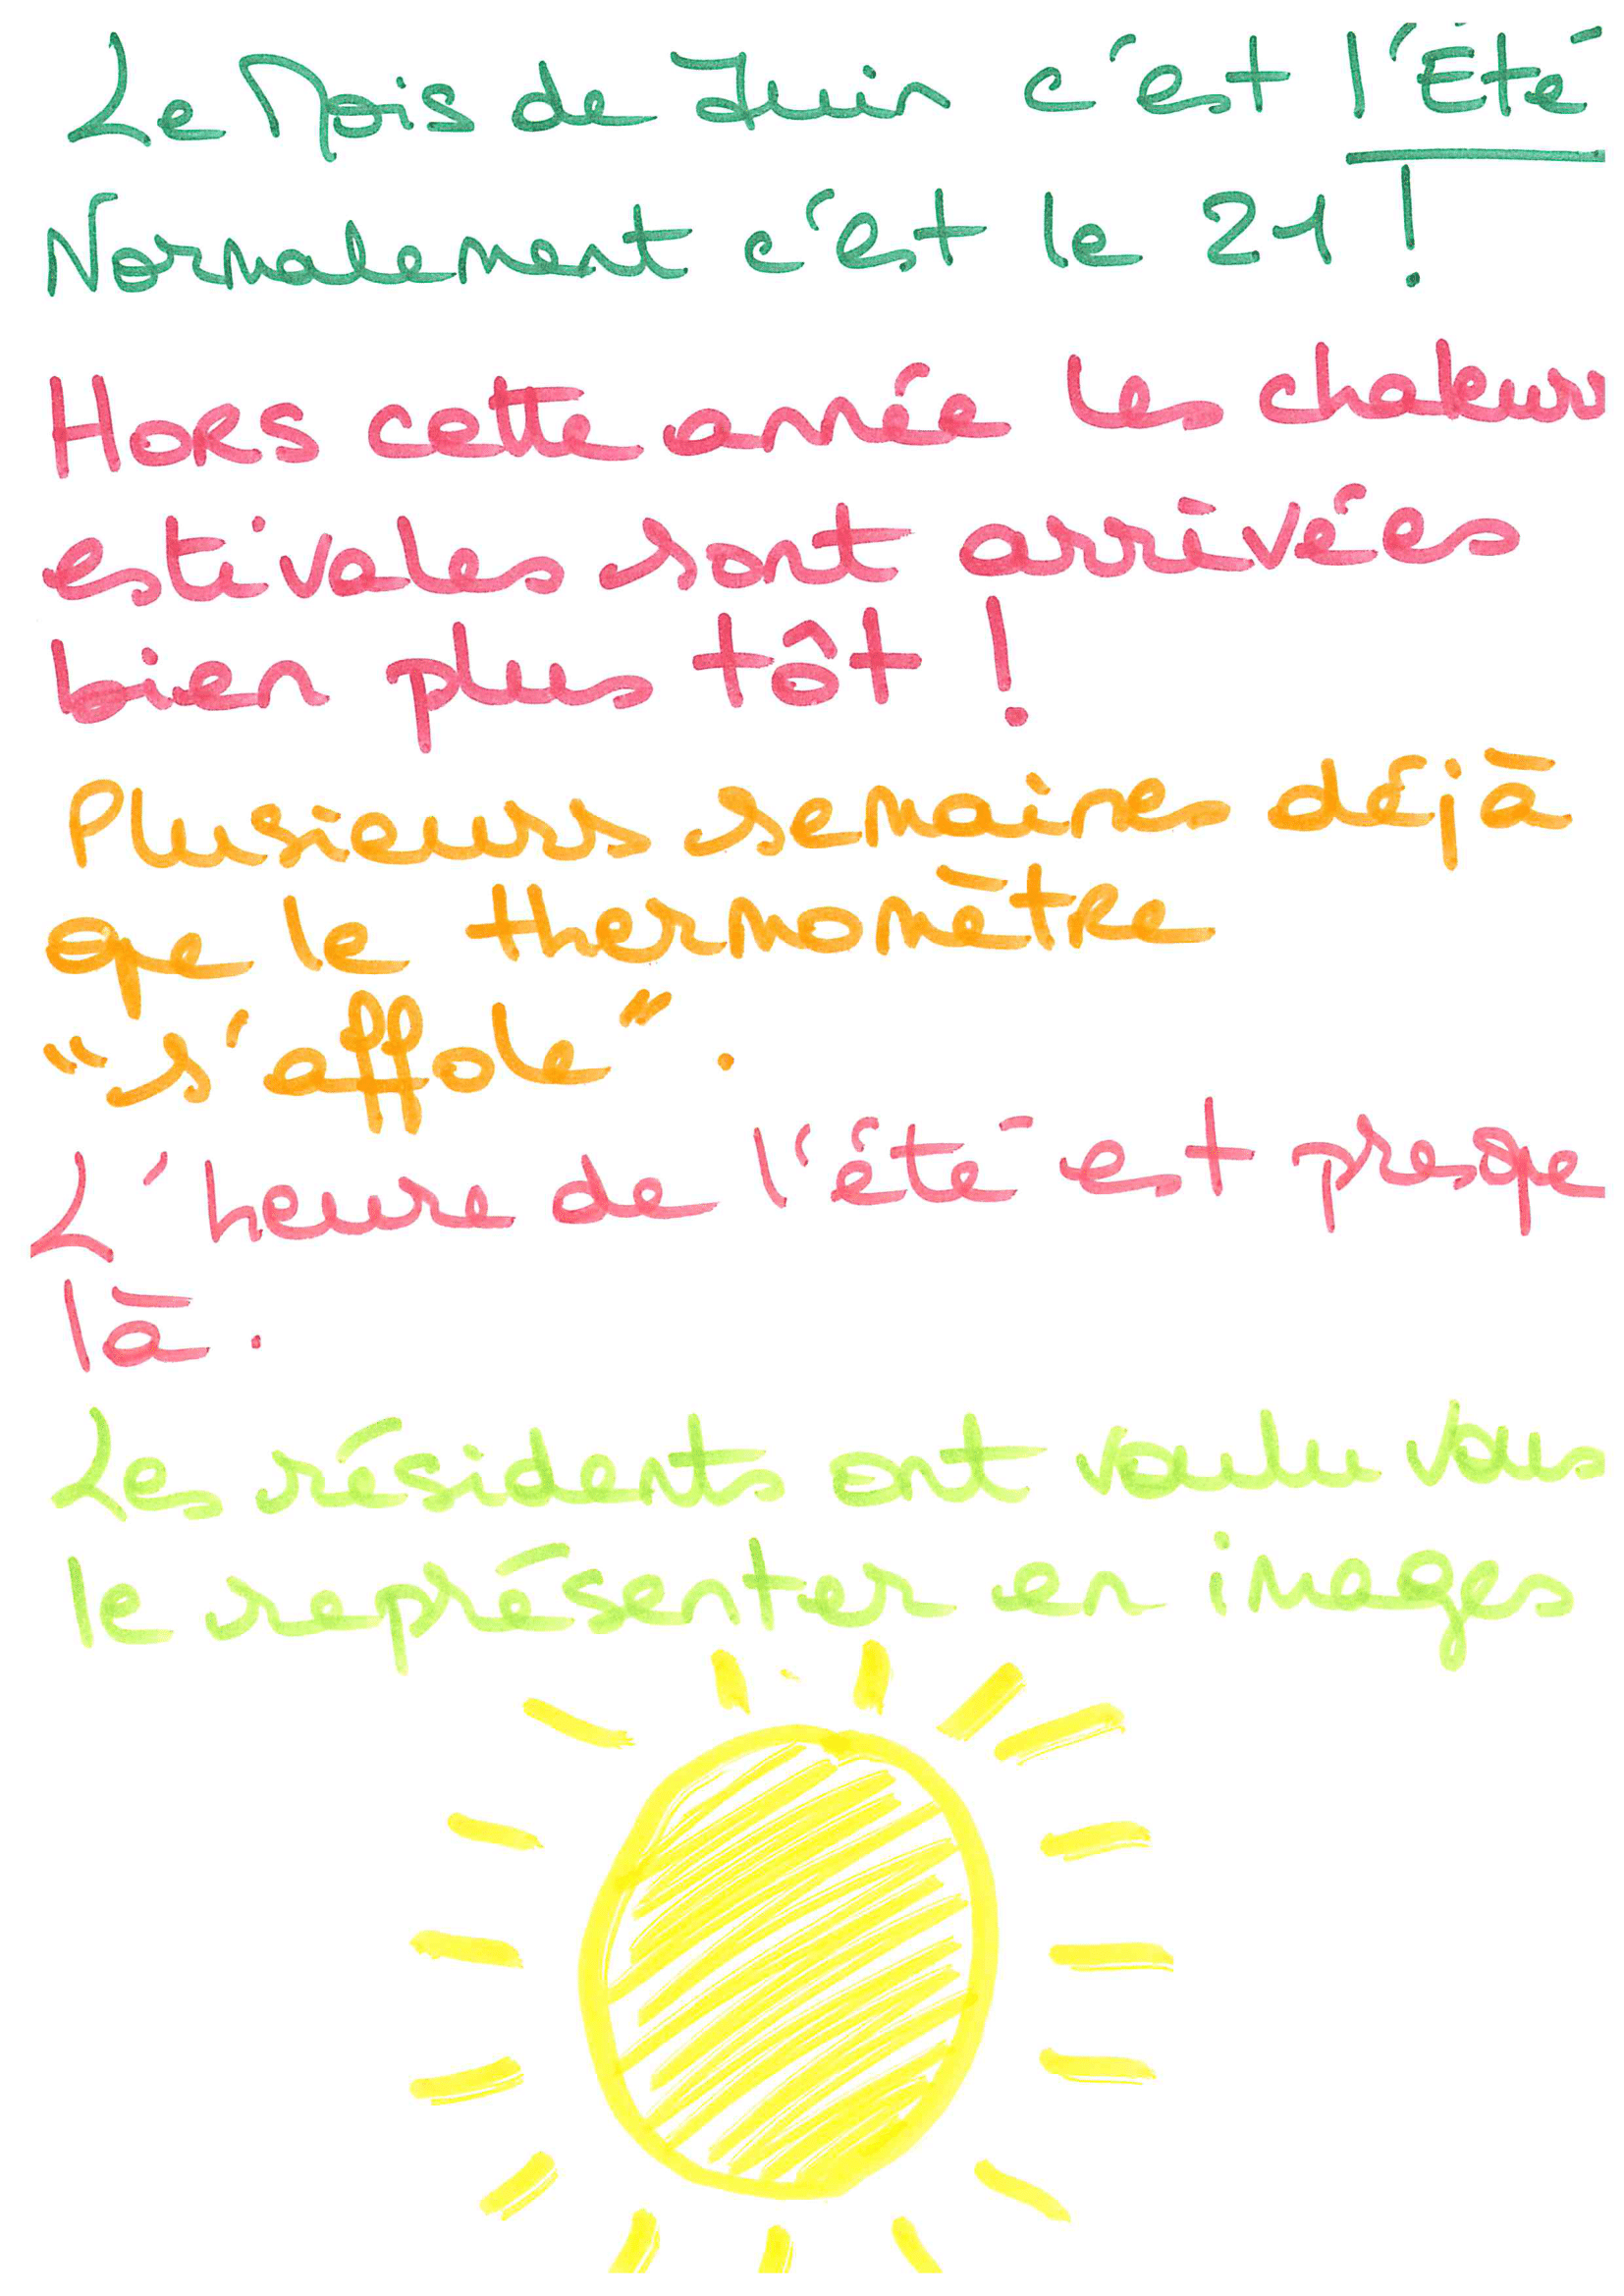 Le Mois de Juin c'est l'Eté
Normalement c'est le 21 !
HORS cette année les chaleurs
estivales sont arrivées
bien plus tôt !
Plusieurs semaines déjà
que le thermomètre
"s'affole".
L'heure de l'été est presque
là.
Les résidents ont voulu vous
le représenter en images